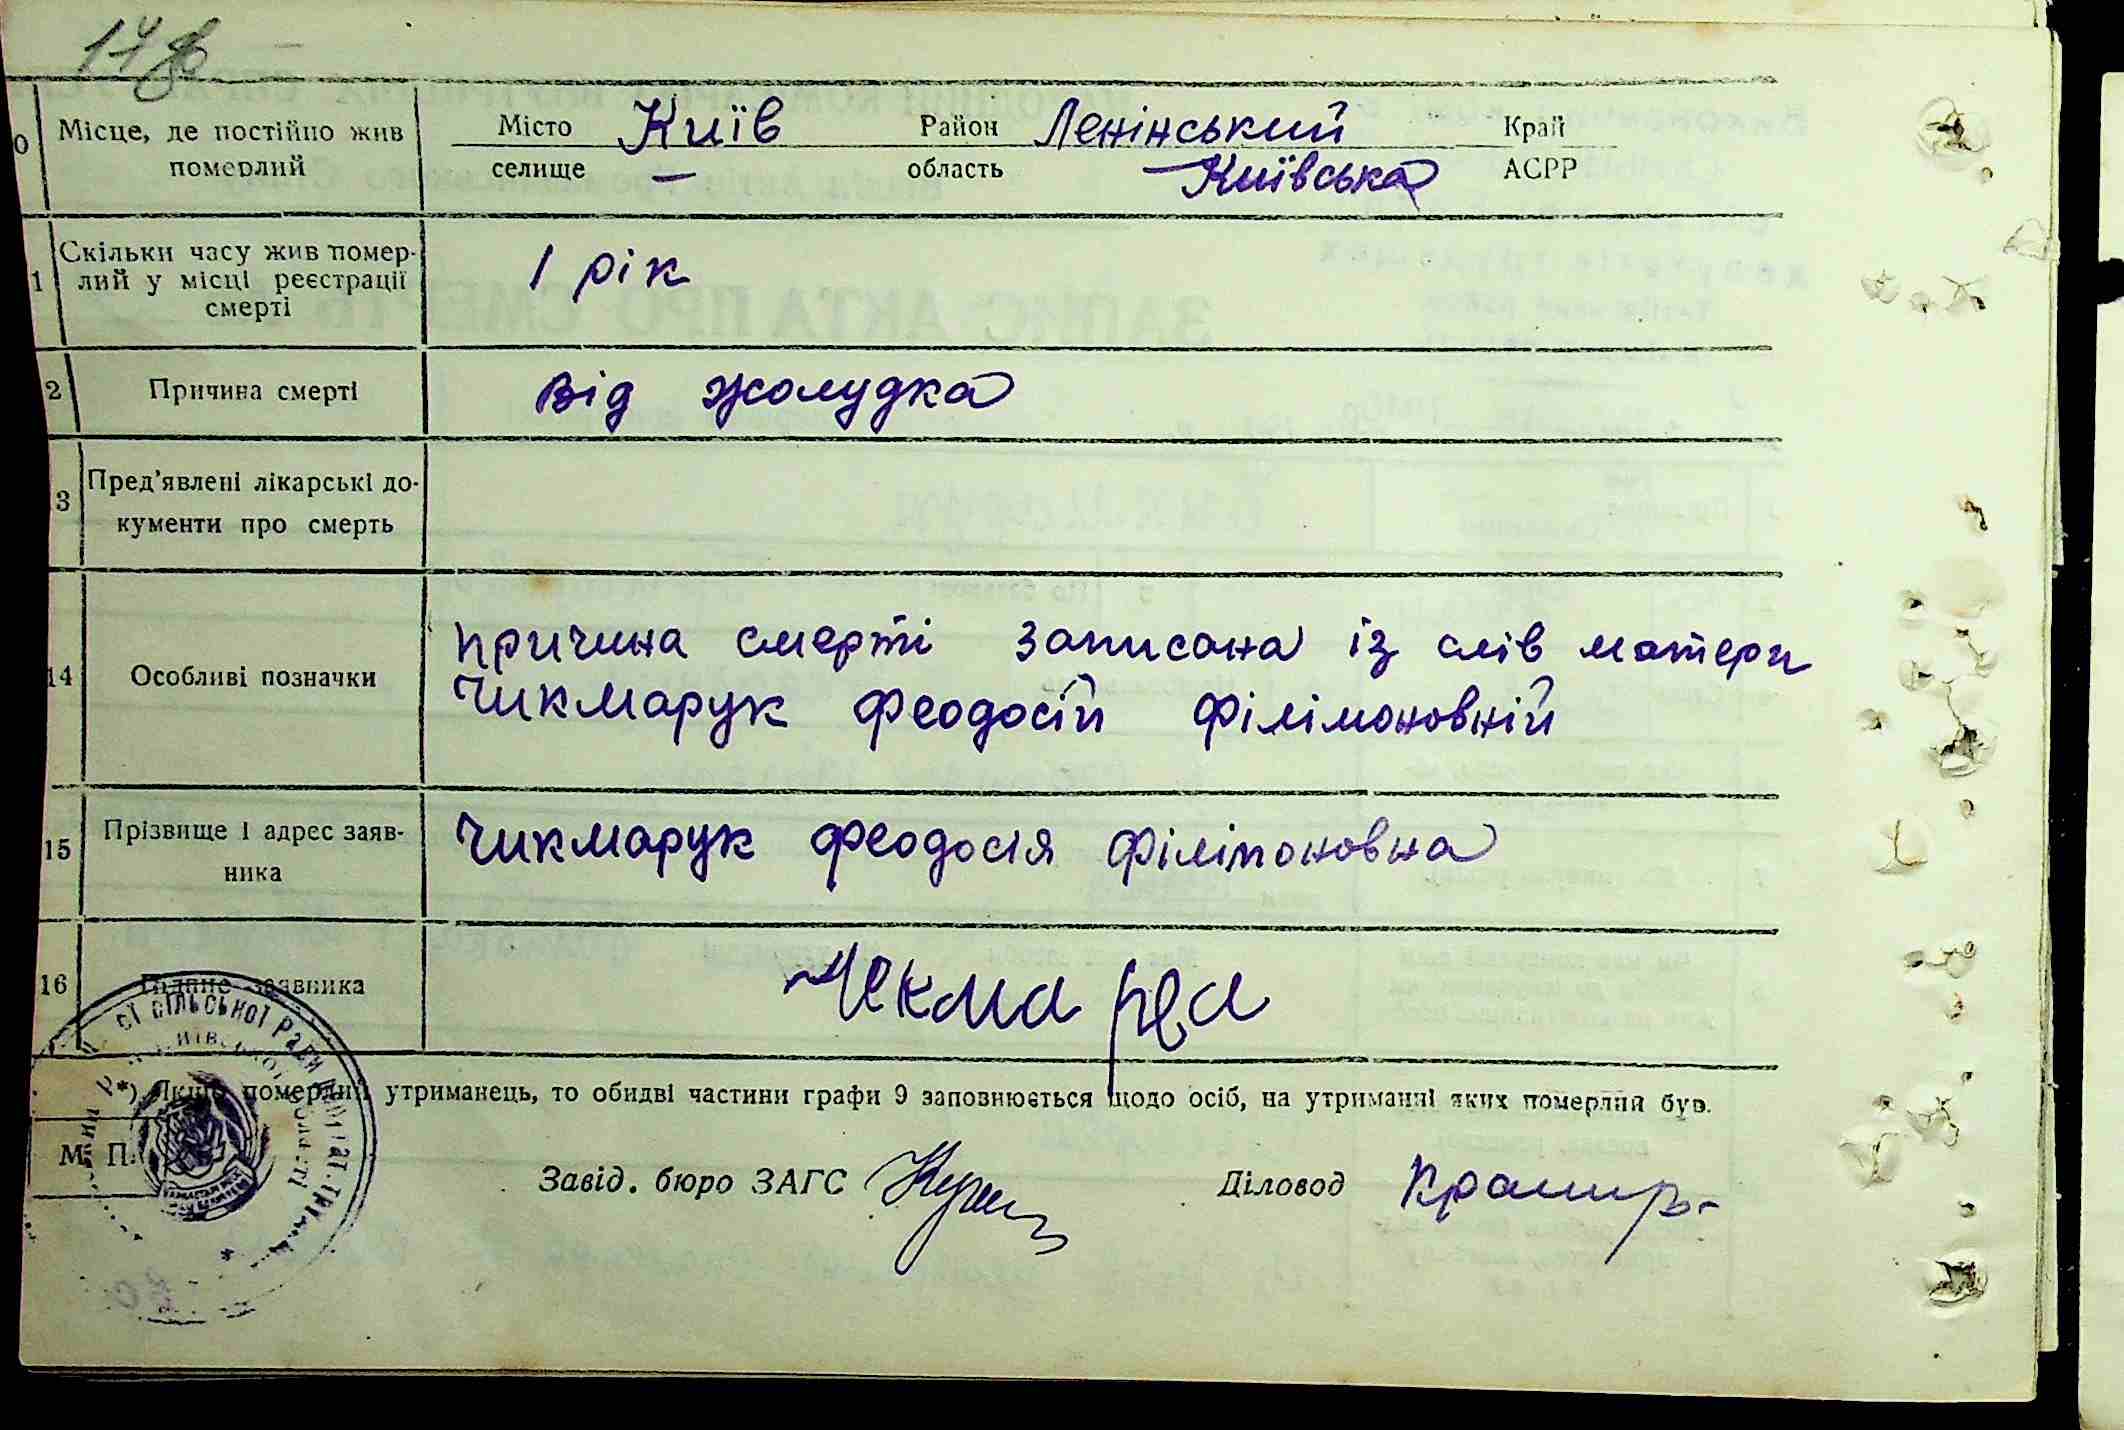 Місто Київ Район Ленінський Край
0 Місце, де постійно жив померлий
селище — область Київська АСРР
1 Скільки часу жив помер-
лий у місці реєстрації
смерті
1 рік
2 Причина смерті від жолудка
3 Пред'явлені лікарські до-
кументи про смерть
причина смерті записана із слів матери
14 Особливі позначки
Чикмарук Феодосій Філімоновній
15 Прізвище і адрес заяв-
ника
Чикмарук Феодосія Філімоновна
16 Підпис заявника
*) Якщо померлий утриманець, то обидві частини графи 9 заповнюється щодо осіб, на утриманні яких померлий був.
М. П.
Завід. бюро ЗАГС Діловод
СІЛЬСЬКОЇ РАДИ